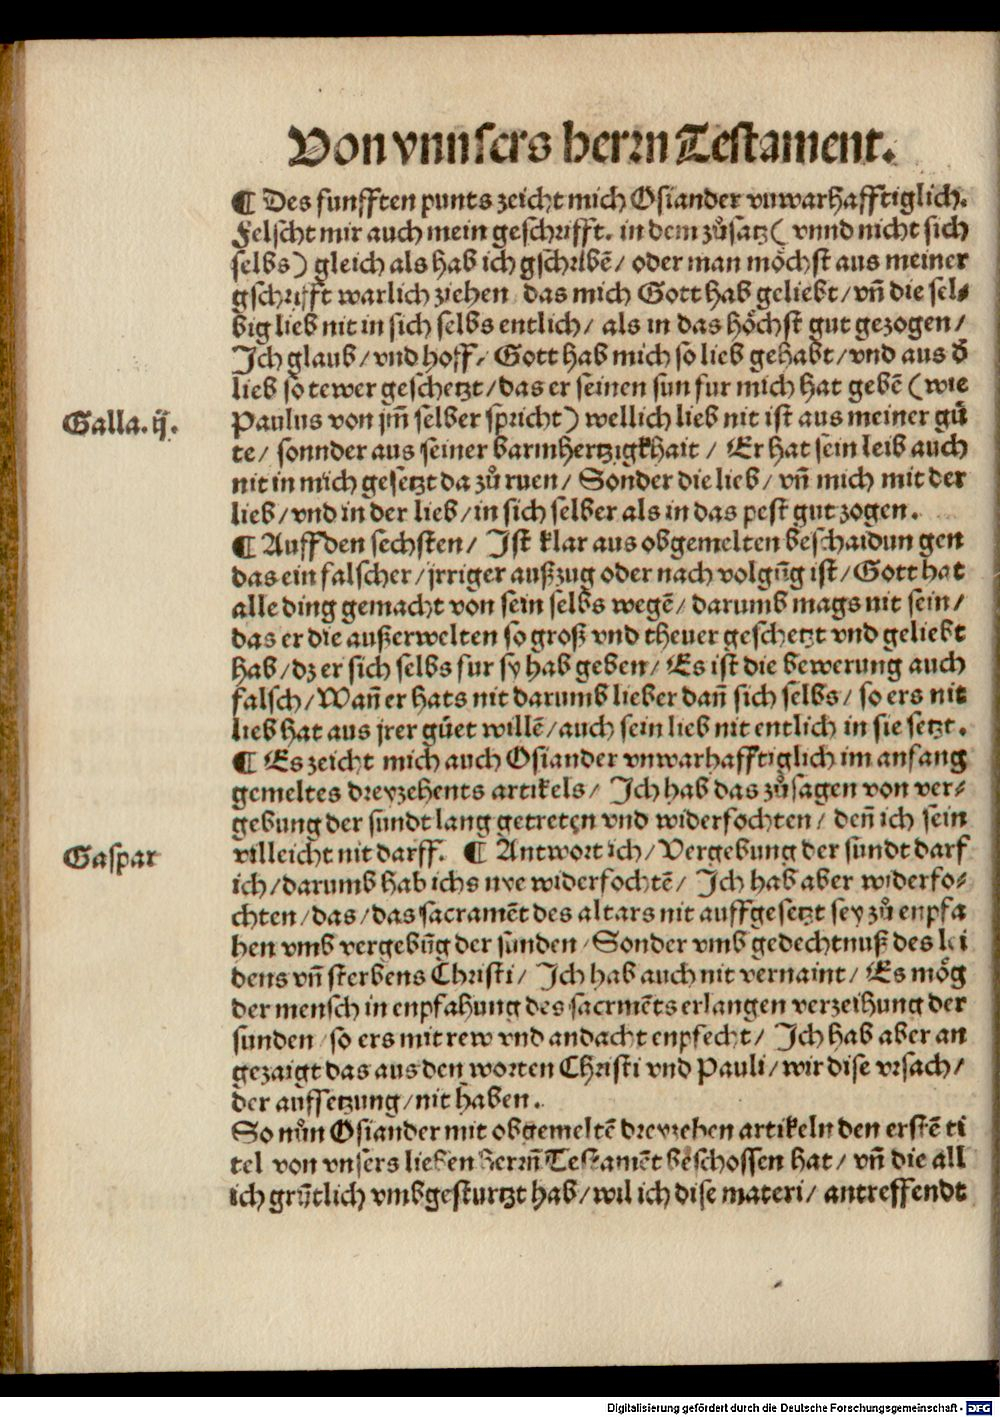 Von vnnsers herrn Testament.
¶ Des funfften punts zeicht mich Osiander vnwarhafftiglich.
Felscht mir auch mein geschrifft. in dem zůsatz ( vnnd nicht sich
selbs) gleich als hab ich gschribē/ oder man möchst aus meiner
gschrifft warlich ziehen das mich Gott hab geliebt/ vn̄ die sel⸗
big lieb nit in sich selbs entlich/ als in das höchst gut gezogen/
Ich glaub/ vnd hoff/ Gott hab mich so lieb gehabt/ vnd aus d̕
lieb so tewer geschetzt/ das er seinen sun fur mich hat gebē (wie
Galla. ij.
Paulus von jm̄ selber spricht) wellich lieb nit ist aus meiner gů
te/ sonnder aus seiner barmhertzigkhait / Er hat sein leib auch
nit in mich gesetzt da zů ruen/ Sonder die lieb/ vn̄ mich mit der
lieb/ vnd in der lieb/ in sich selber als in das pest gut zogen.
¶ Auff den sechsten/ Ist klar aus obgemelten beschaidun gen
das ein falscher/ jrriger außzug oder nach volgūg ist/ Gott hat
alle ding gemacht von sein selbs wegē/ darumb mags nit sein/
das er die außerwelten so groß vnd theuer geschetzt vnd geliebt
hab/ dz er sich selbs fur sy hab geben/ Es ist die bewerung auch
falsch/ Wan̄ er hats nit darumb lieber dan̄ sich selbs/ so ers nit
lieb hat aus jrer gůet willē/ auch sein lieb nit entlich in sie setzt.
¶ Es zeicht mich auch Osiander vnwarhafftiglich im anfang
gemeltes dreyzehents artikels/ Ich hab das zůsagen von ver⸗
gebung der sundt lang getreten vnd widerfochten/ den̄ ich sein
Gaspar
villeicht nit darff. ¶ Antwort ich/ Vergebung der sundt darf
ich/ darumb hab ichs nye widerfochtē/ Ich hab aber widerfo⸗
chten/ das/ das sacramēt des altars nit auffgesetzt sey zů enpfa
hen vmb vergebūg der sunden/ Sonder vmb gedechtnuß des lei
dens vn̄ sterbens Christi/ Ich hab auch nit vernaint/ Es mög
der mensch in enpfahung des sacrmēts erlangen verzeihung der
sunden/ so ers mit rew vnd andacht enpfecht/ Ich hab aber an
gezaigt das aus den worten Christi vnd Pauli/ wir dise vrsach/
der auffsetzung/ nit haben.
So nůn Osiander mit obgemeltē dreyzehen artikeln den erstē ti
tel von vnsers lieben herrn̄ Testamēt beschossen hat/ vn̄ die all
ich grūtlich vmbgesturtzt hab/ wil ich dise materi/ antreffendt
Digitalisierung gefördert durch die Deutsche Forschungsgemeinschaft - DFG